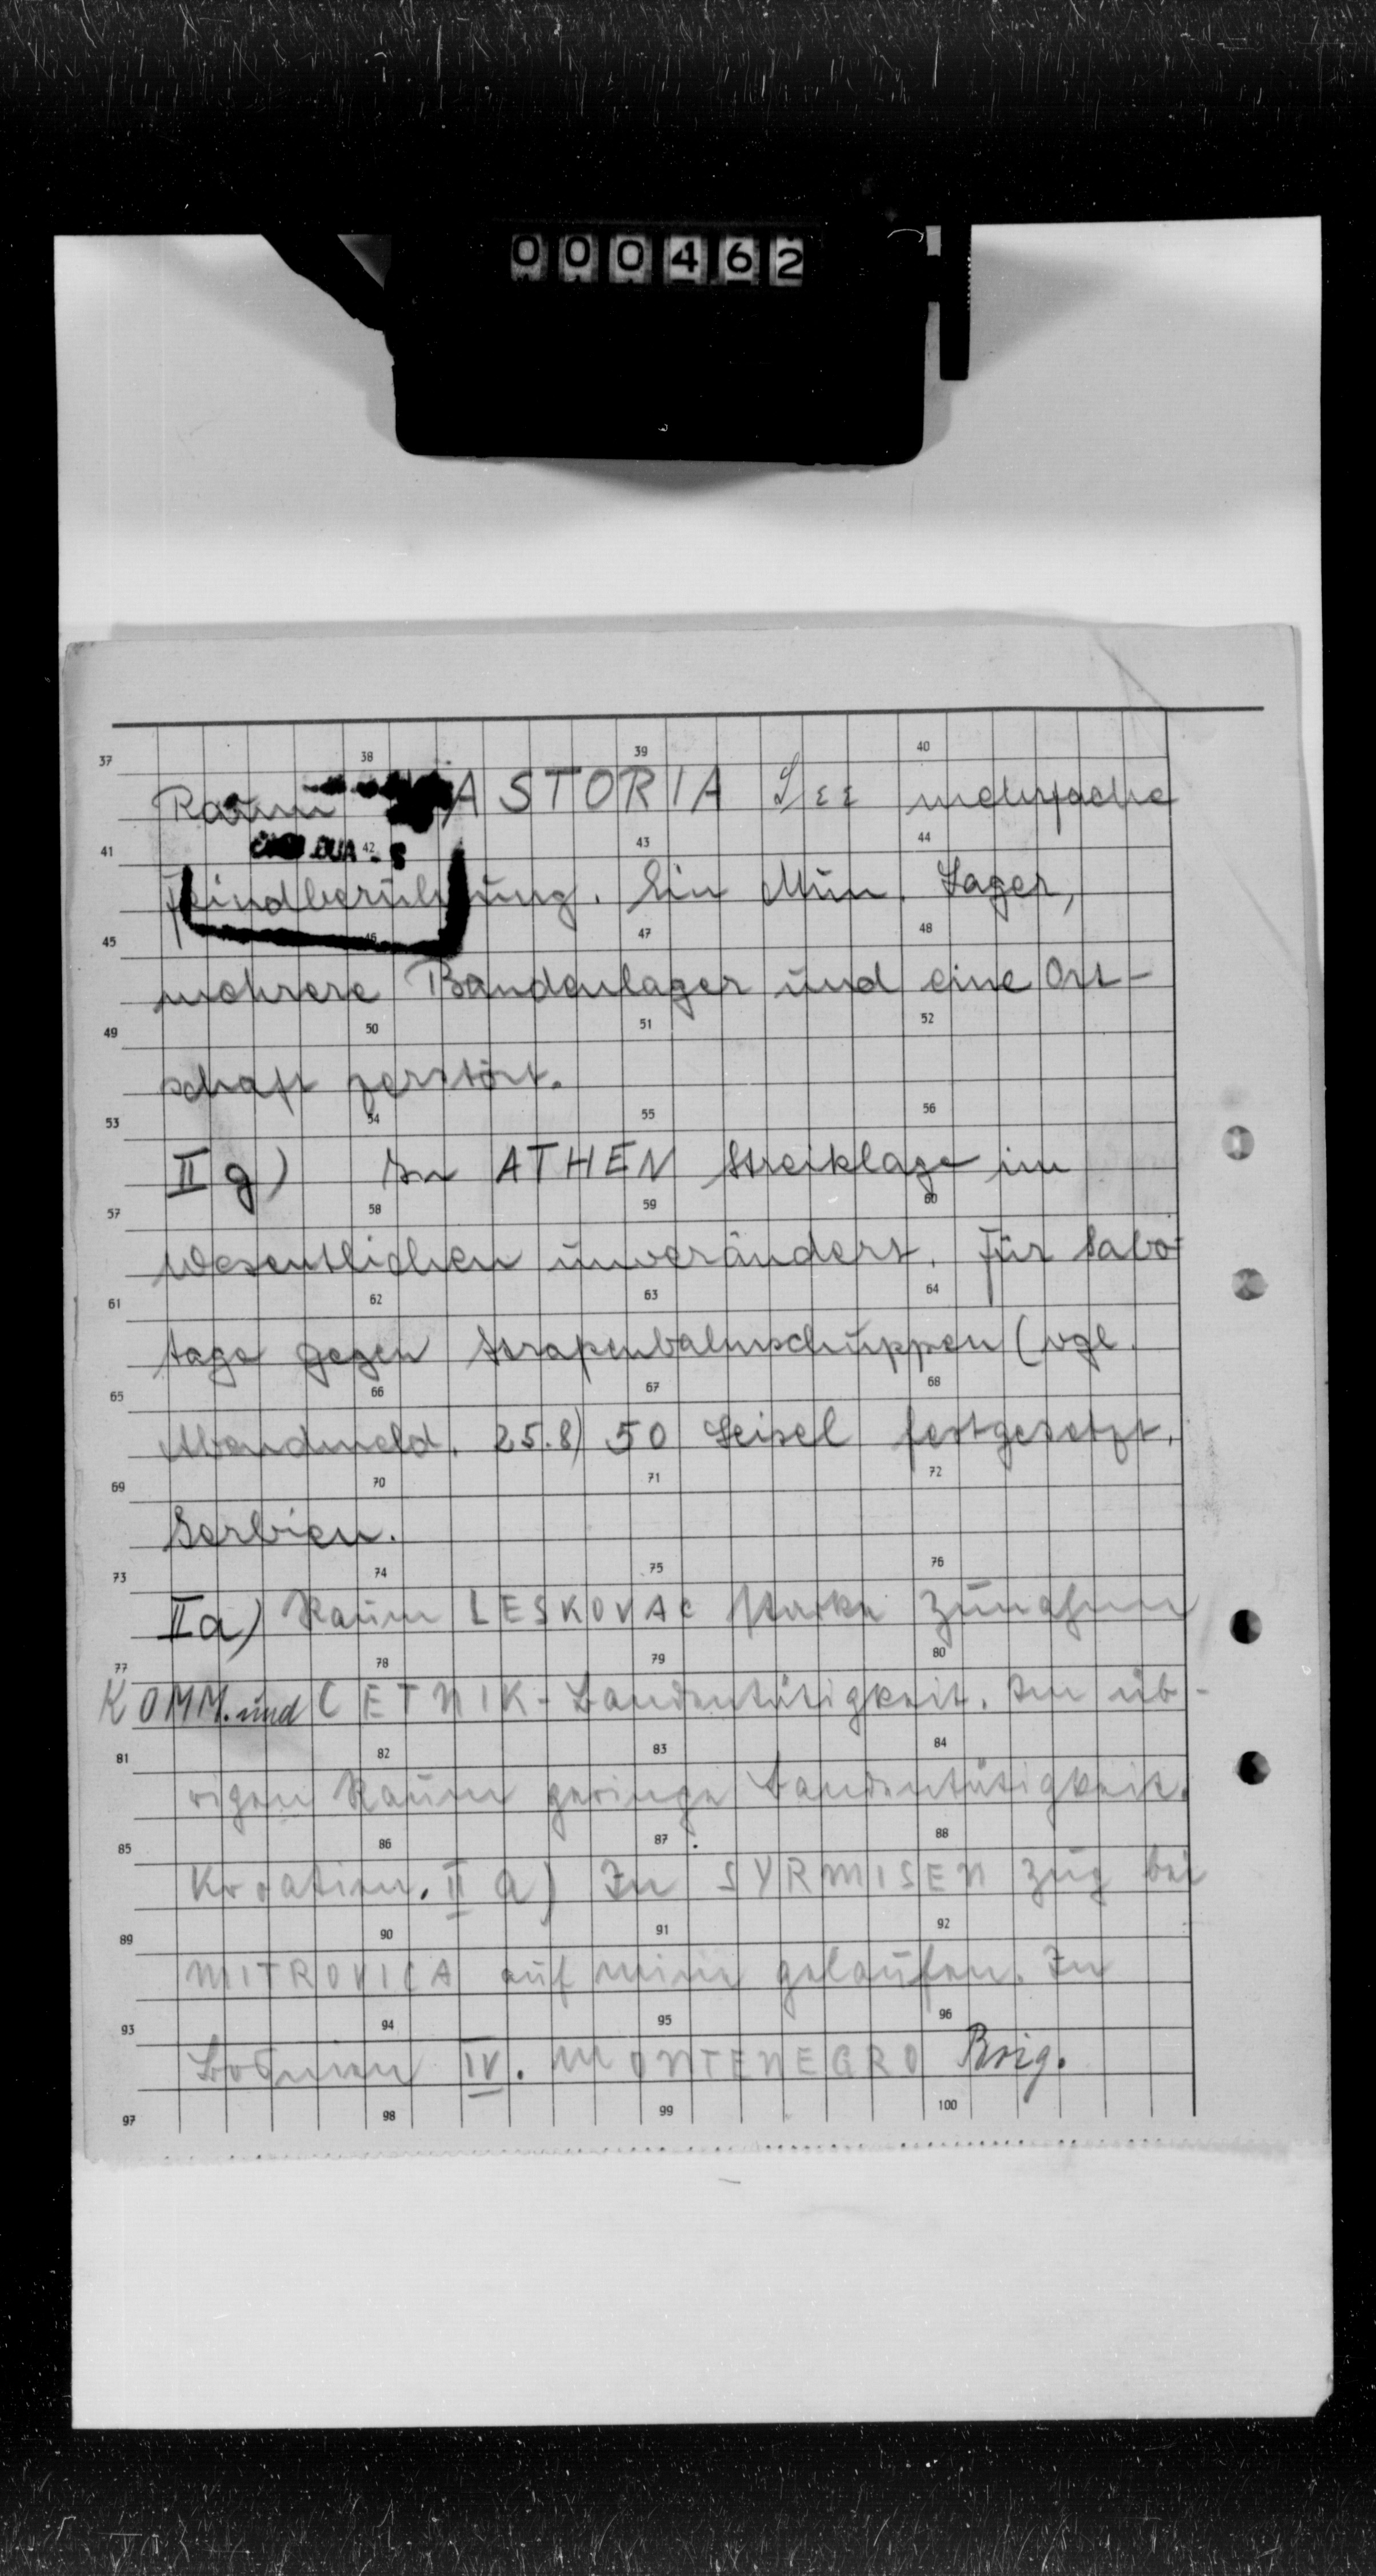 000462
37 38 39 40
Raum ASTORIA See mehrfache
41 42 43 44
Feindberührung. Ein Mun. Lager,
45 46 47 48
mehrere Bandenlager und eine Ort-
49 50 51 52
schaft zerstört.
53 54 55 56
II g) In ATHEN Streiklage im
57 58 59 60
wesentlichen unverändert. Für Sabo-
61 62 63 64
tage gegen Strassenbahnschuppen (vgl.
65 66 67 68
Abendmeld. 25.8) 50 Geisel festgesetzt.
69 70 71 72
Serbien.
73 74 75 76
II a) Raum LESKOVAC starke Zunahme
77 78 79 80
KOMM. und CETNIK-Bandentätigkeit. Im üb-
81 82 83 84
rigen Raum geringe Bandentätigkeit.
85 86 87 88
Kroatien. II a) In SYRMISEN Zug bei
89 90 91 92
MITROVICA auf Mine gelaufen. In
93 94 95 96
Bosnien IV. MONTENEGRO Brig.
97 98 99 100